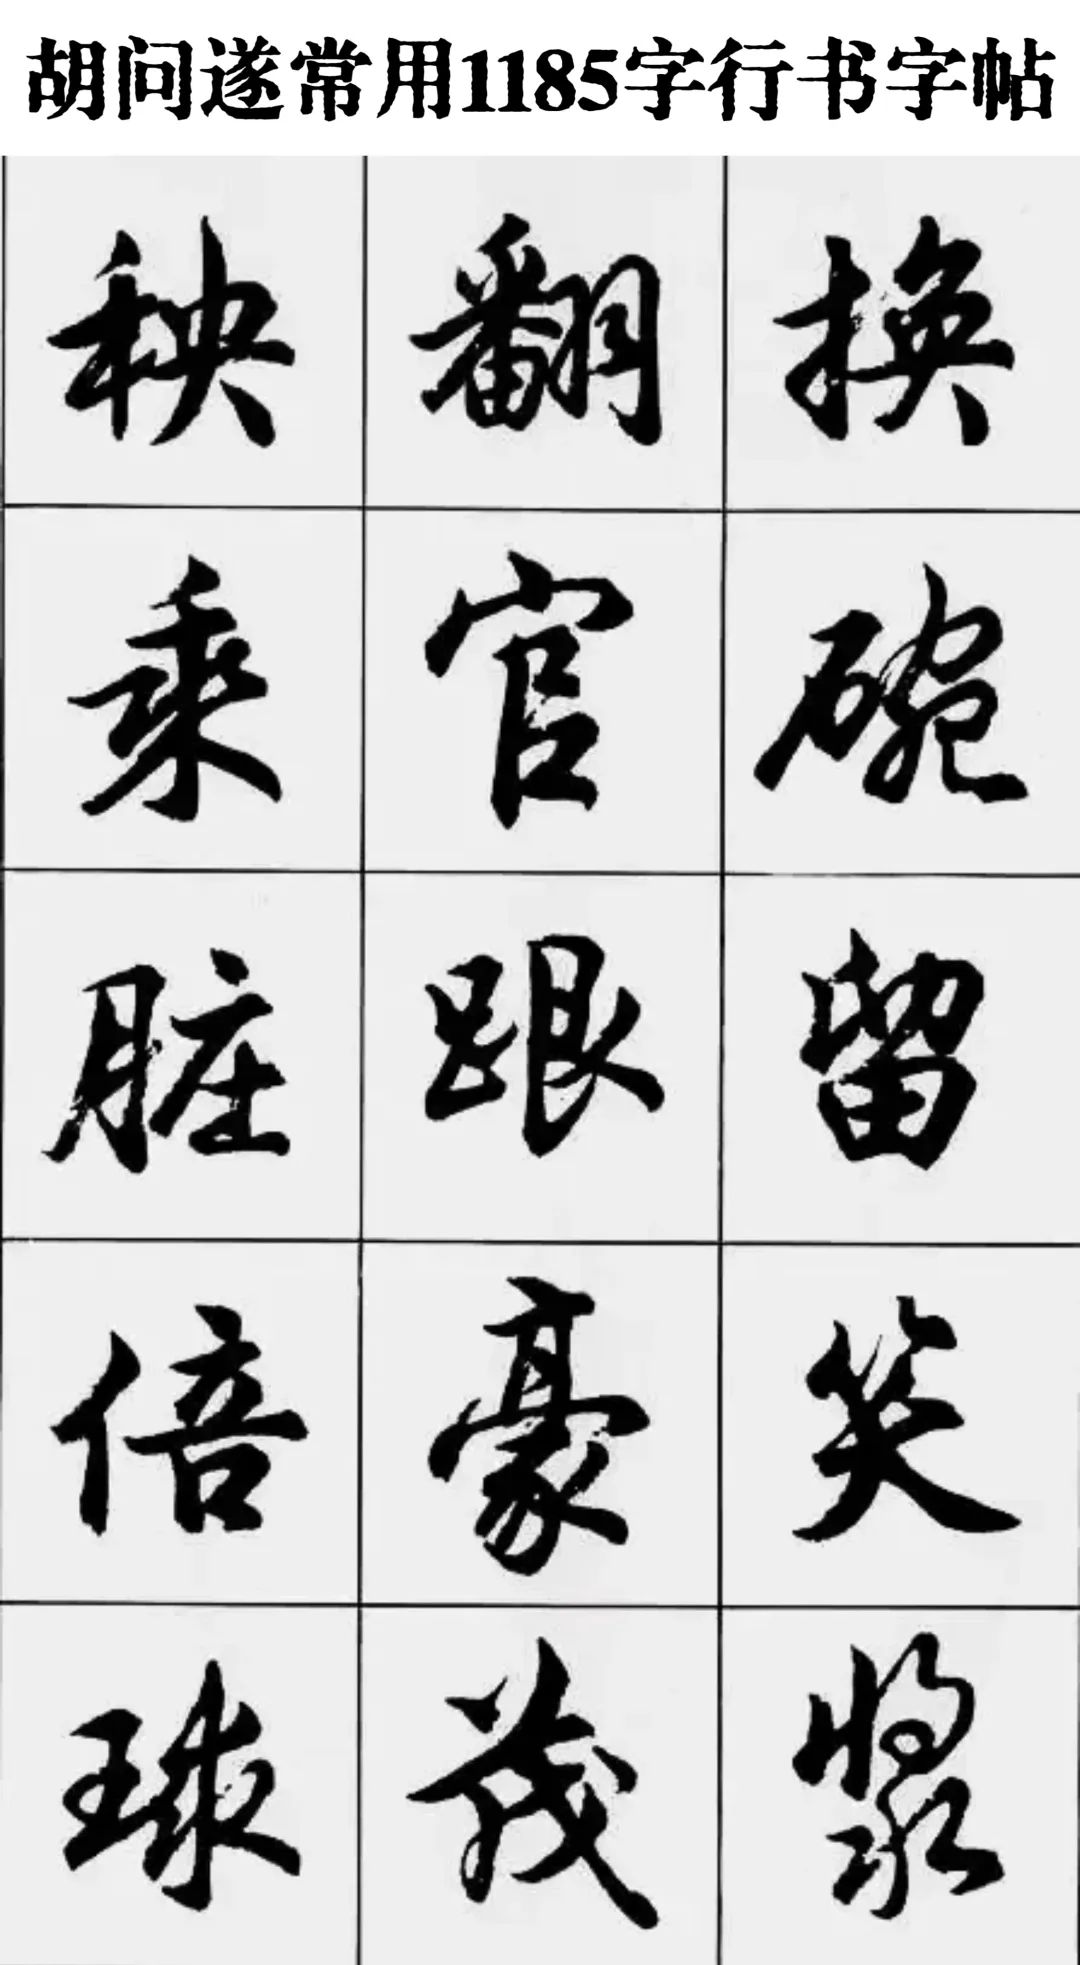 胡问遂常用1185字行书字帖
秧翻换
乘官碗
脏跟留
倍豪笑
球茂浆